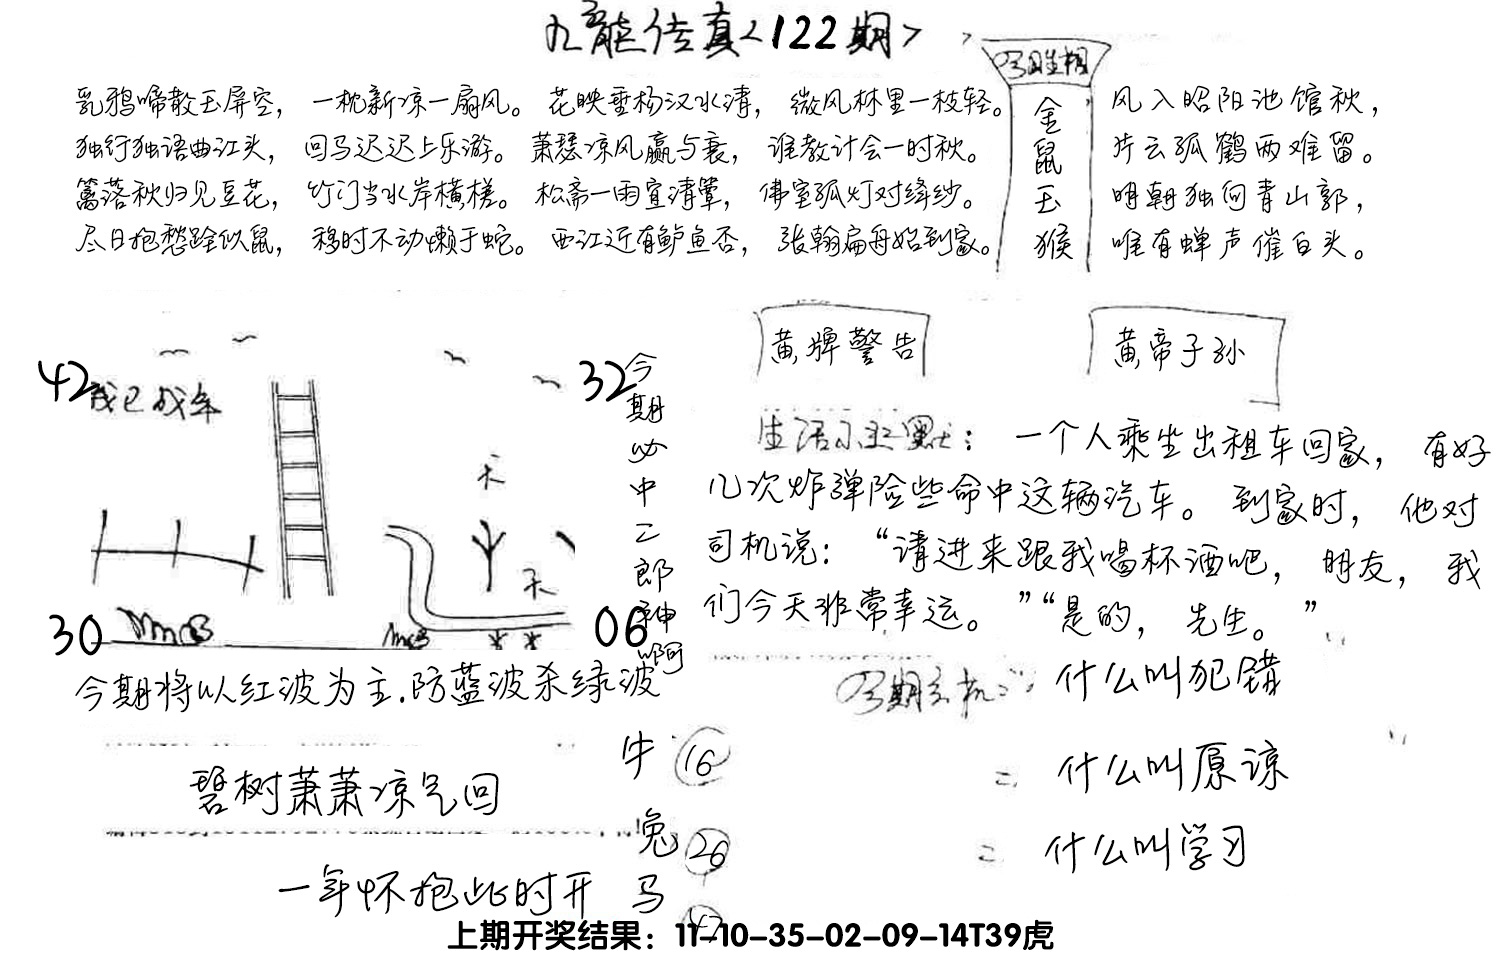 九龙传真<122期>
乳鸦啼散玉屏空，一枕新凉一扇风。花映垂杨汉水清，微风林里一枝轻。
独行独语曲江头，回马迟迟上乐游。萧瑟凉风赢与衰，谁教计会一时秋。
篱落秋归见豆花，竹门当水岸横槎。松斋一雨宜清簟，佛室孤灯对绛纱。
尽日抱愁跧似鼠，移时不动懒于蛇。西江近有鲈鱼否，张翰扁舟始到家。
金
鼠
玉
猴
风入昭阳池馆秋，
片云孤鹤两难留。
明朝独向青山郭，
唯有蝉声催白头。
42
32
30
06
天
天
今期必中二郎神啊
今期将以红波为主.防蓝波杀绿波
碧树萧萧凉气回
一年怀抱此时开
牛 16
兔 26
马
黄牌警告
黄帝子孙
一个人乘坐出租车回家，有好
几次炸弹险些命中这辆汽车。到家时，他对
司机说：“请进来跟我喝杯酒吧，朋友，我
们今天非常幸运。”“是的，先生。”
什么叫犯错
什么叫原谅
什么叫学习
上期开奖结果：11-10-35-02-09-14T39虎